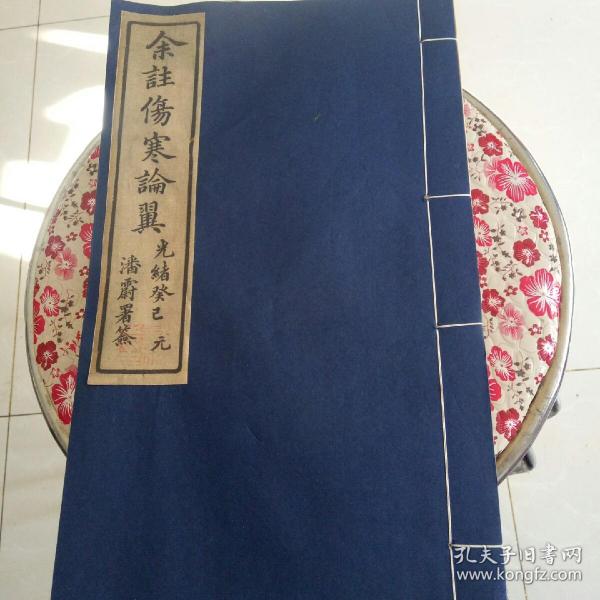 余註傷寒論翼
光緒癸巳 元
潘霨署簽
孔夫子旧书网
www.kongfz.com